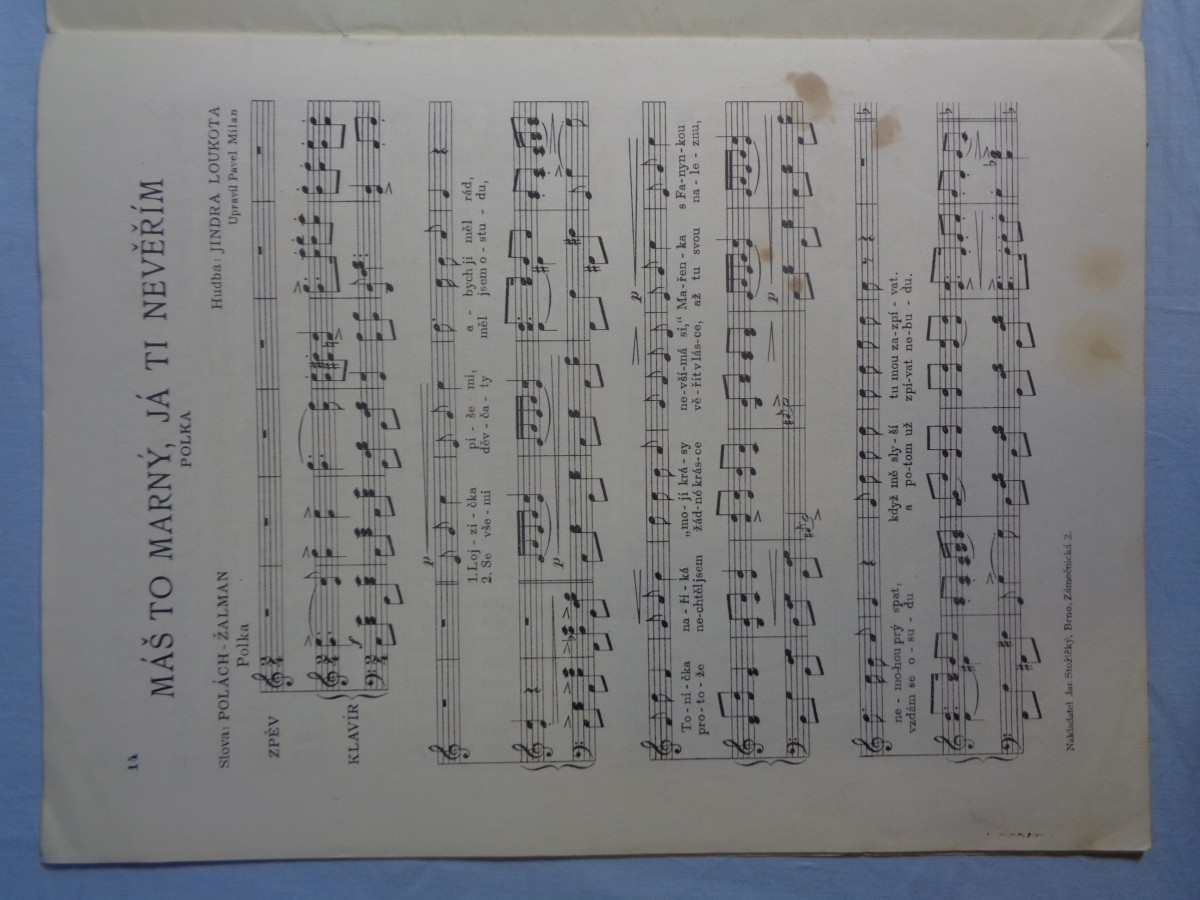 14
MÁŠ TO MARNÝ, JÁ TI NEVĚŘÍM
POLKA
Slova: POLACH-ŽALMAN
Hudba: JINDRA LOUKOTA
Upravil Pavel Milan
Polka
ZPĚV
KLAVÍR
f
p
1. Loj - zi - čka pí - še mi, a - bych jí měl rád,
2. Se vše - mi děv - ča - ty měl jsem o - stu - du,
p
p
To - ni - čka na - ří - ká „mo - jí krá - sy ne - vší - má si,“ Ma - řen - ka s Fa - nyn - kou
pro - to - že ne - chtěl jsem žád - né krás - ce vě - řit v lás - ce, až tu svou na - le - znu,
p
ne - mo - hou prý spat, když mě sly - ší tu mou za - zpí - vat.
vzdám se o - su - du a po - tom už zpí - vat ne - bu - du.
Nakladatel Jar. Stožický, Brno, Zámečnická 2.